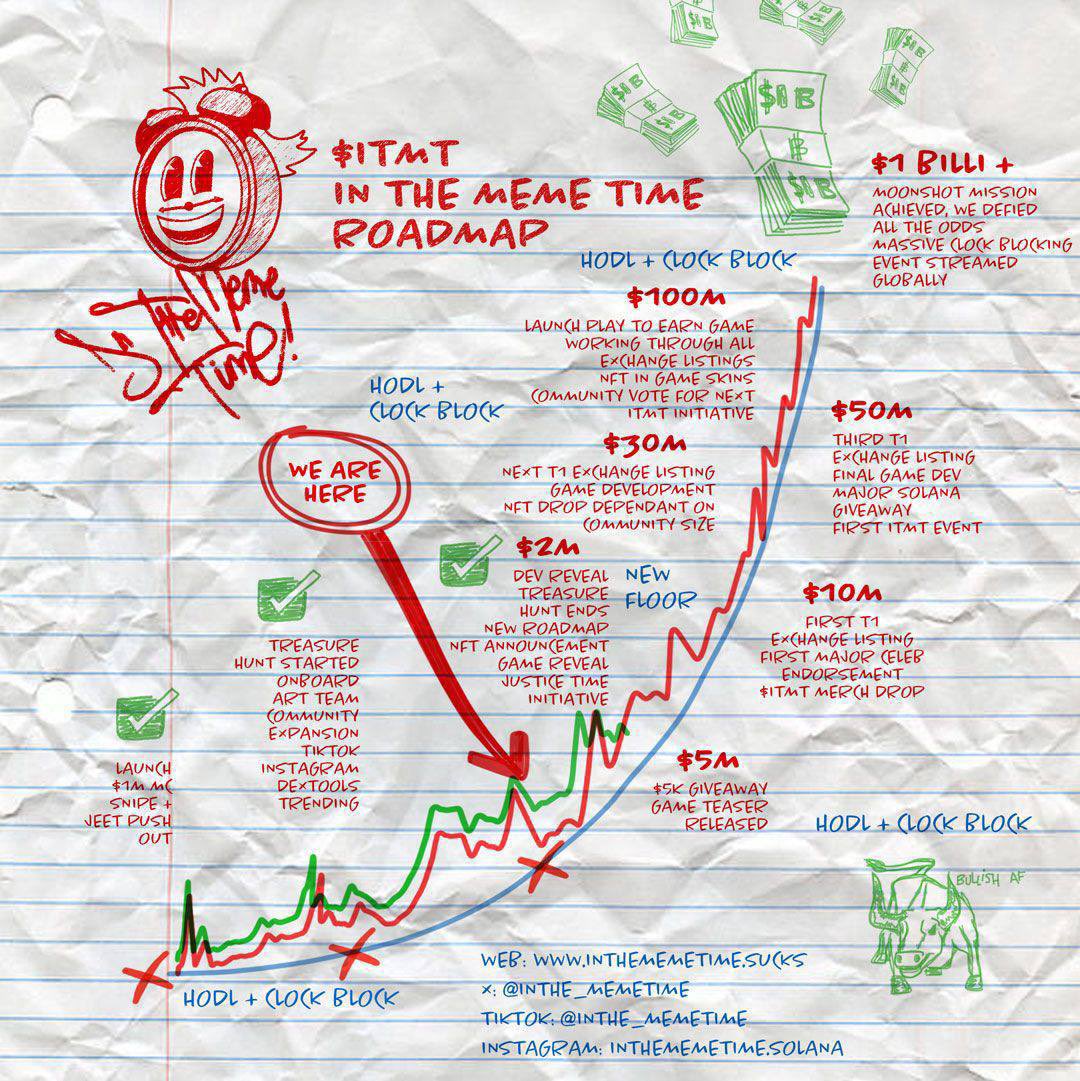 $ITMT
IN THE MEME TIME
ROADMAP
In The Meme
Time!
$1B
$1B
$1B
฿
$1B
$1 BILLI +
MOONSHOT MISSION
ACHIEVED, WE DEFIED
ALL THE ODDS
MASSIVE CLOCK BLOCKING
EVENT STREAMED
GLOBALLY
HODL + CLOCK BLOCK
$100M
LAUNCH PLAY TO EARN GAME
WORKING THROUGH ALL
EXCHANGE LISTINGS
NFT IN GAME SKINS
COMMUNITY VOTE FOR NEXT
ITMT INITIATIVE
HODL +
CLOCK BLOCK
$50M
THIRD T1
EXCHANGE LISTING
FINAL GAME DEV
MAJOR SOLANA
GIVEAWAY
FIRST ITMT EVENT
$30M
NEXT T1 EXCHANGE LISTING
GAME DEVELOPMENT
NFT DROP DEPENDANT ON
COMMUNITY SIZE
WE ARE
HERE
$2M
DEV REVEAL
TREASURE
HUNT ENDS
NEW ROADMAP
NFT ANNOUNCEMENT
GAME REVEAL
JUSTICE TIME
INITIATIVE
NEW
FLOOR
$10M
FIRST T1
EXCHANGE LISTING
FIRST MAJOR CELEB
ENDORSEMENT
$ITMT MERCH DROP
TREASURE
HUNT STARTED
ONBOARD
ART TEAM
COMMUNITY
EXPANSION
TIKTOK
INSTAGRAM
DEXTOOLS
TRENDING
LAUNCH
$1M MC
SNIPE +
JEET PUSH
OUT
$5M
$5K GIVEAWAY
GAME TEASER
RELEASED
HODL + CLOCK BLOCK
BULLISH AF
HODL + CLOCK BLOCK
WEB: WWW.INTHEMEMETIME.SUCKS
X: @INTHE_MEMETIME
TIKTOK: @INTHE_MEMETIME
INSTAGRAM: INTHEMEMETIME.SOLANA